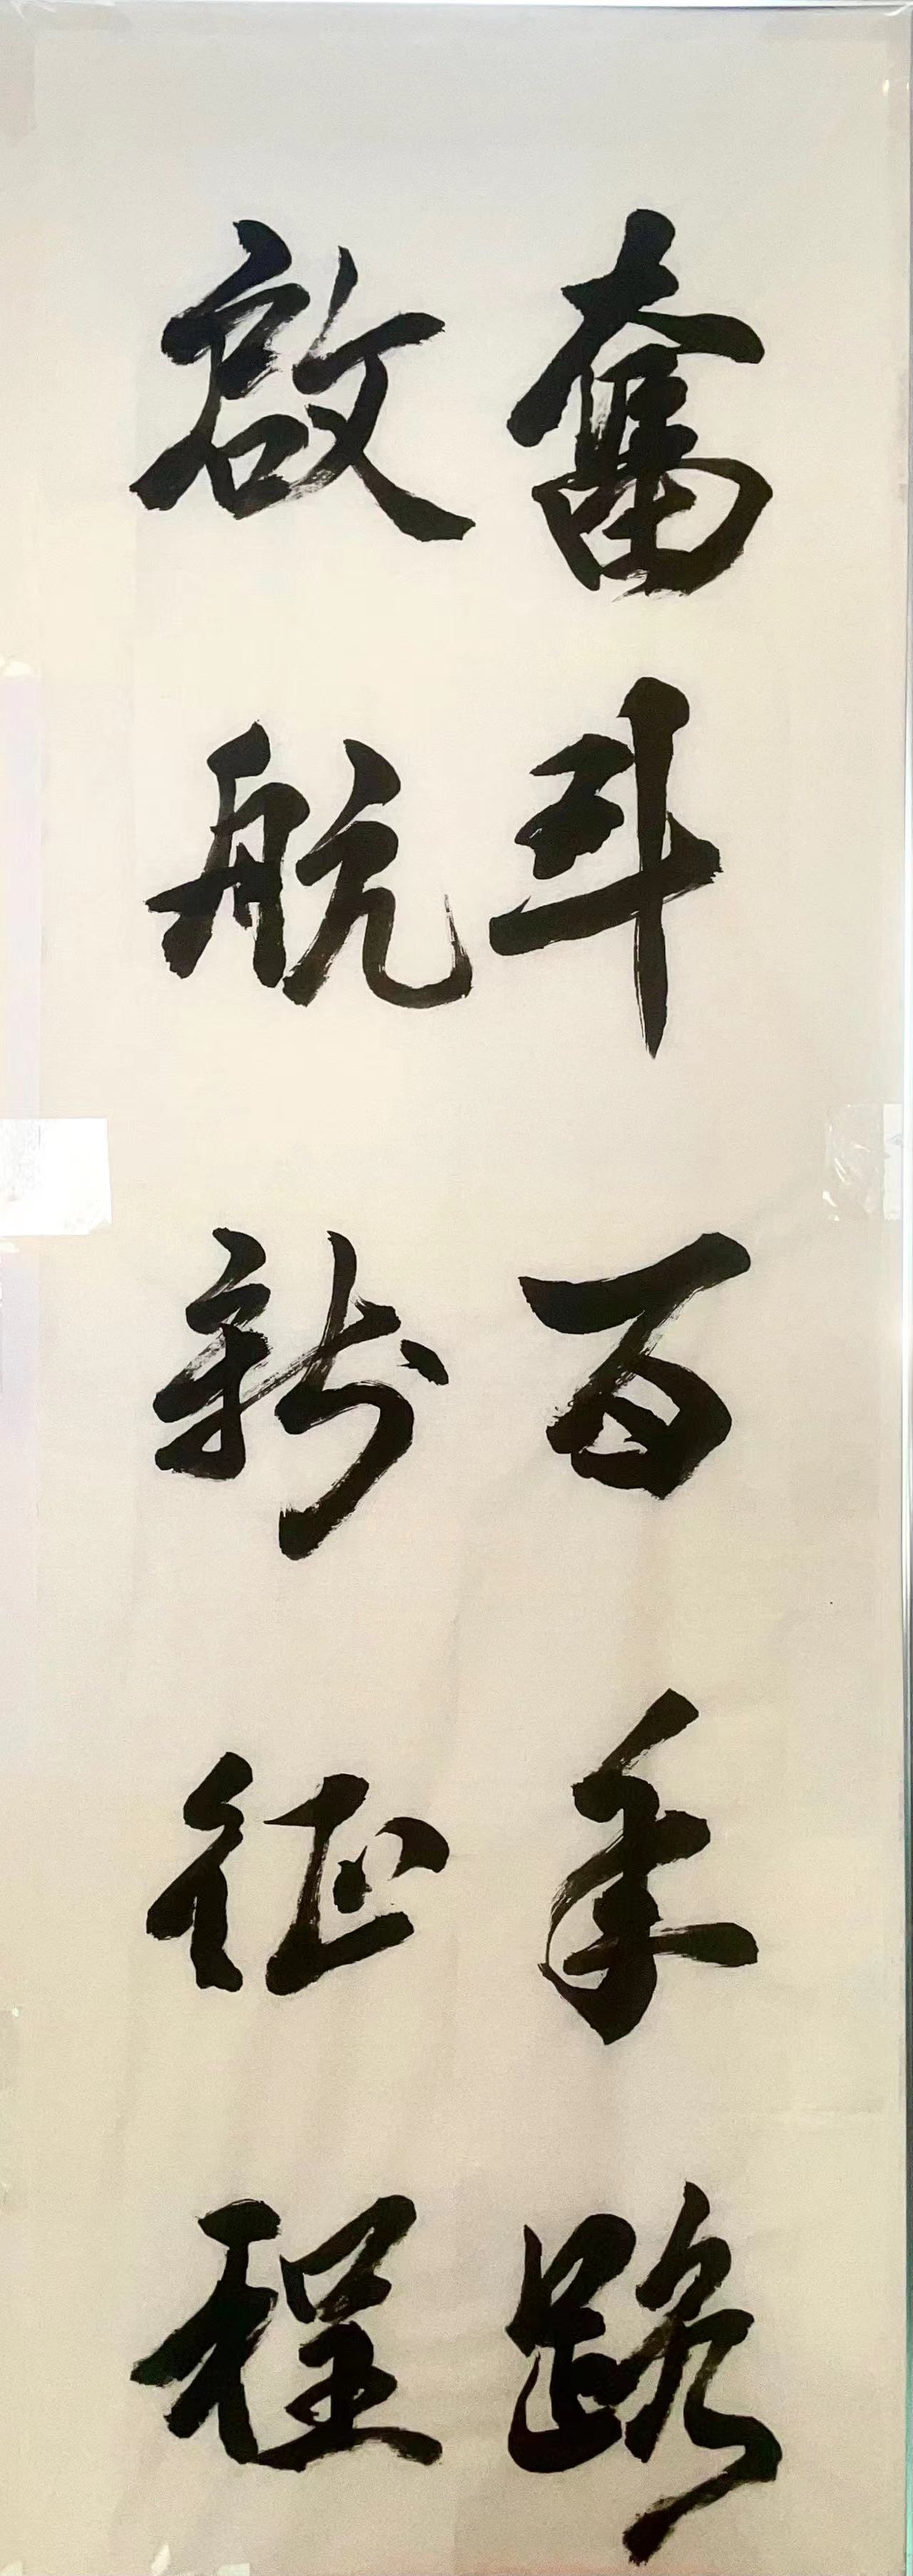 奮斗百年路
啟航新征程